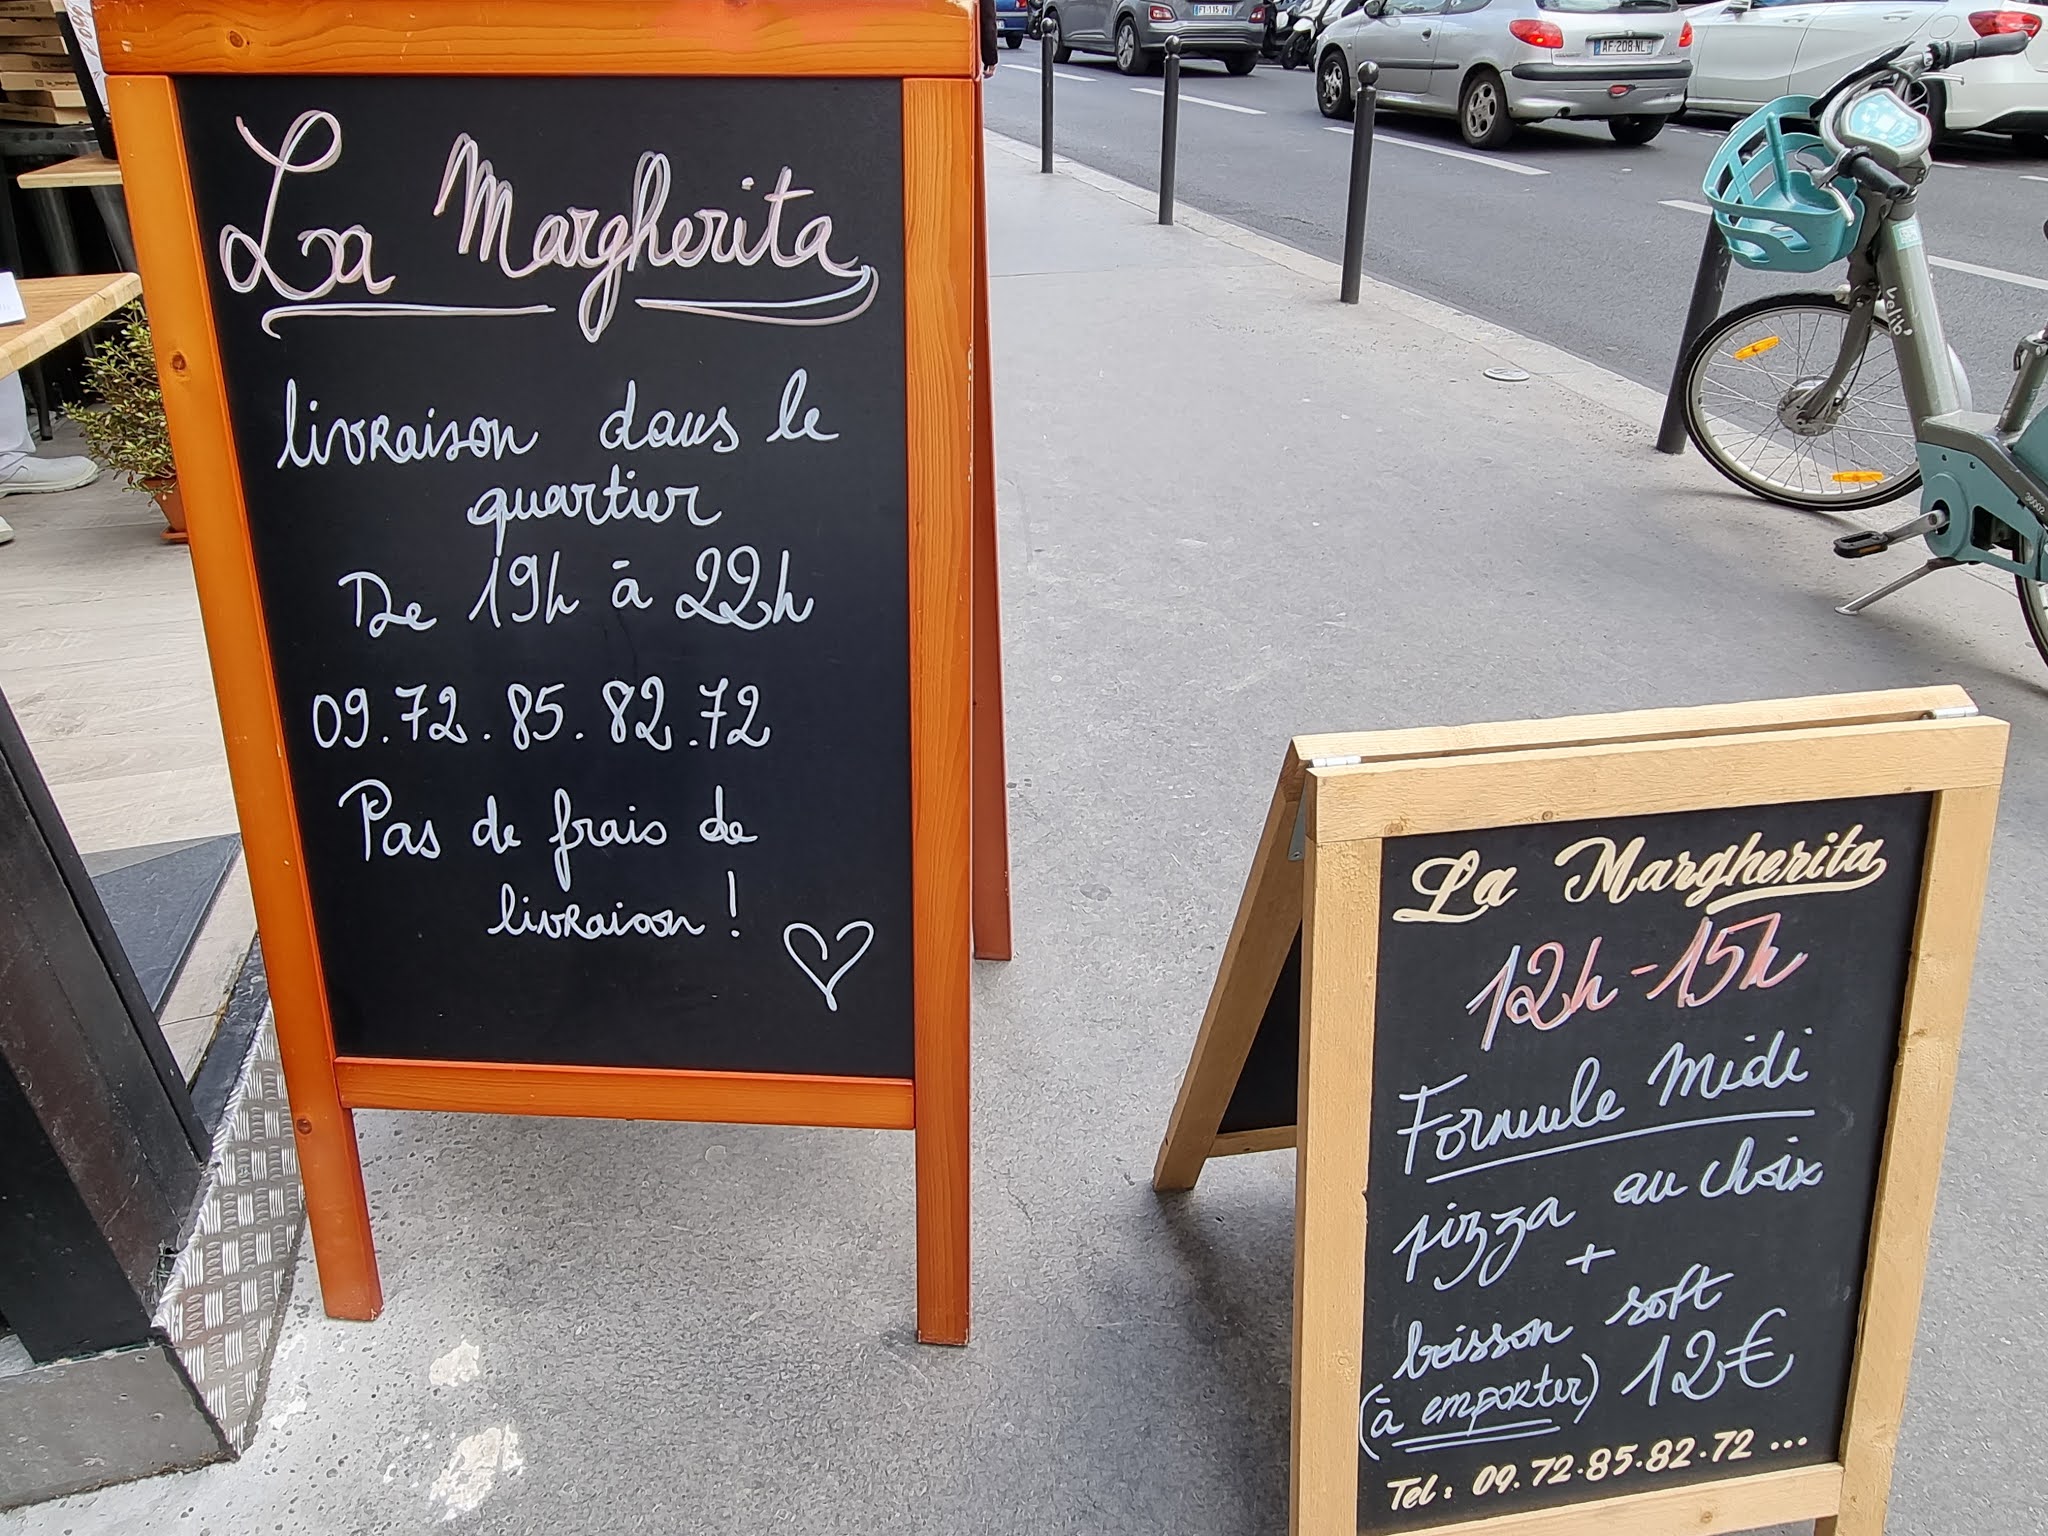 La Margherita
livraison dans le
quartier
De 19h à 22h
09.72.85.82.72
Pas de frais de
livraison !
La Margherita
12h-15h
Formule Midi
pizza au choix
+
boisson soft
(à emporter) 12€
Tel : 09.72.85.82.72 ...
AF 208 NL
FT-115 JV
velib'